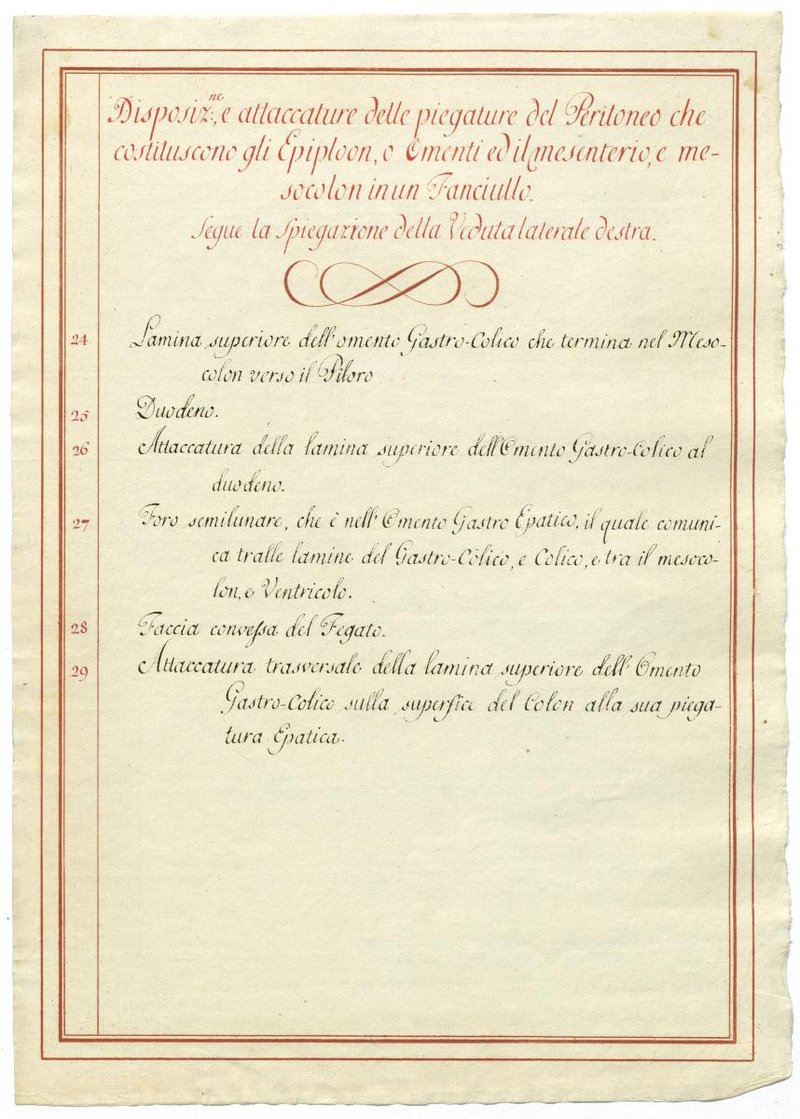 Disposiz.ne, e attaccature delle piegature del Peritoneo che
costituscono gli Epiploon, o Omenti ed il mesenterio, e me-
socolon in un Fanciullo.
Segue la Spiegazione della Veduta laterale destra.
24 Lamina superiore dell'omento Gastro-Colico che termina nel Meso-
colon verso il Piloro
25 Duodeno.
26 Attaccatura della lamina superiore dell'Omento Gastro-Colico al
duodeno.
27 Foro semilunare, che è nell'Omento Gastro Epatico, il quale comuni-
ca tralle lamine del Gastro-Colico, e Colico, e tra il mesoco-
lon, e Ventricolo.
28 Faccia convessa del Fegato.
29 Attaccatura trasversale della lamina superiore dell'Omento
Gastro-Colico sulla superfice del Colon alla sua piega-
tura Epatica.